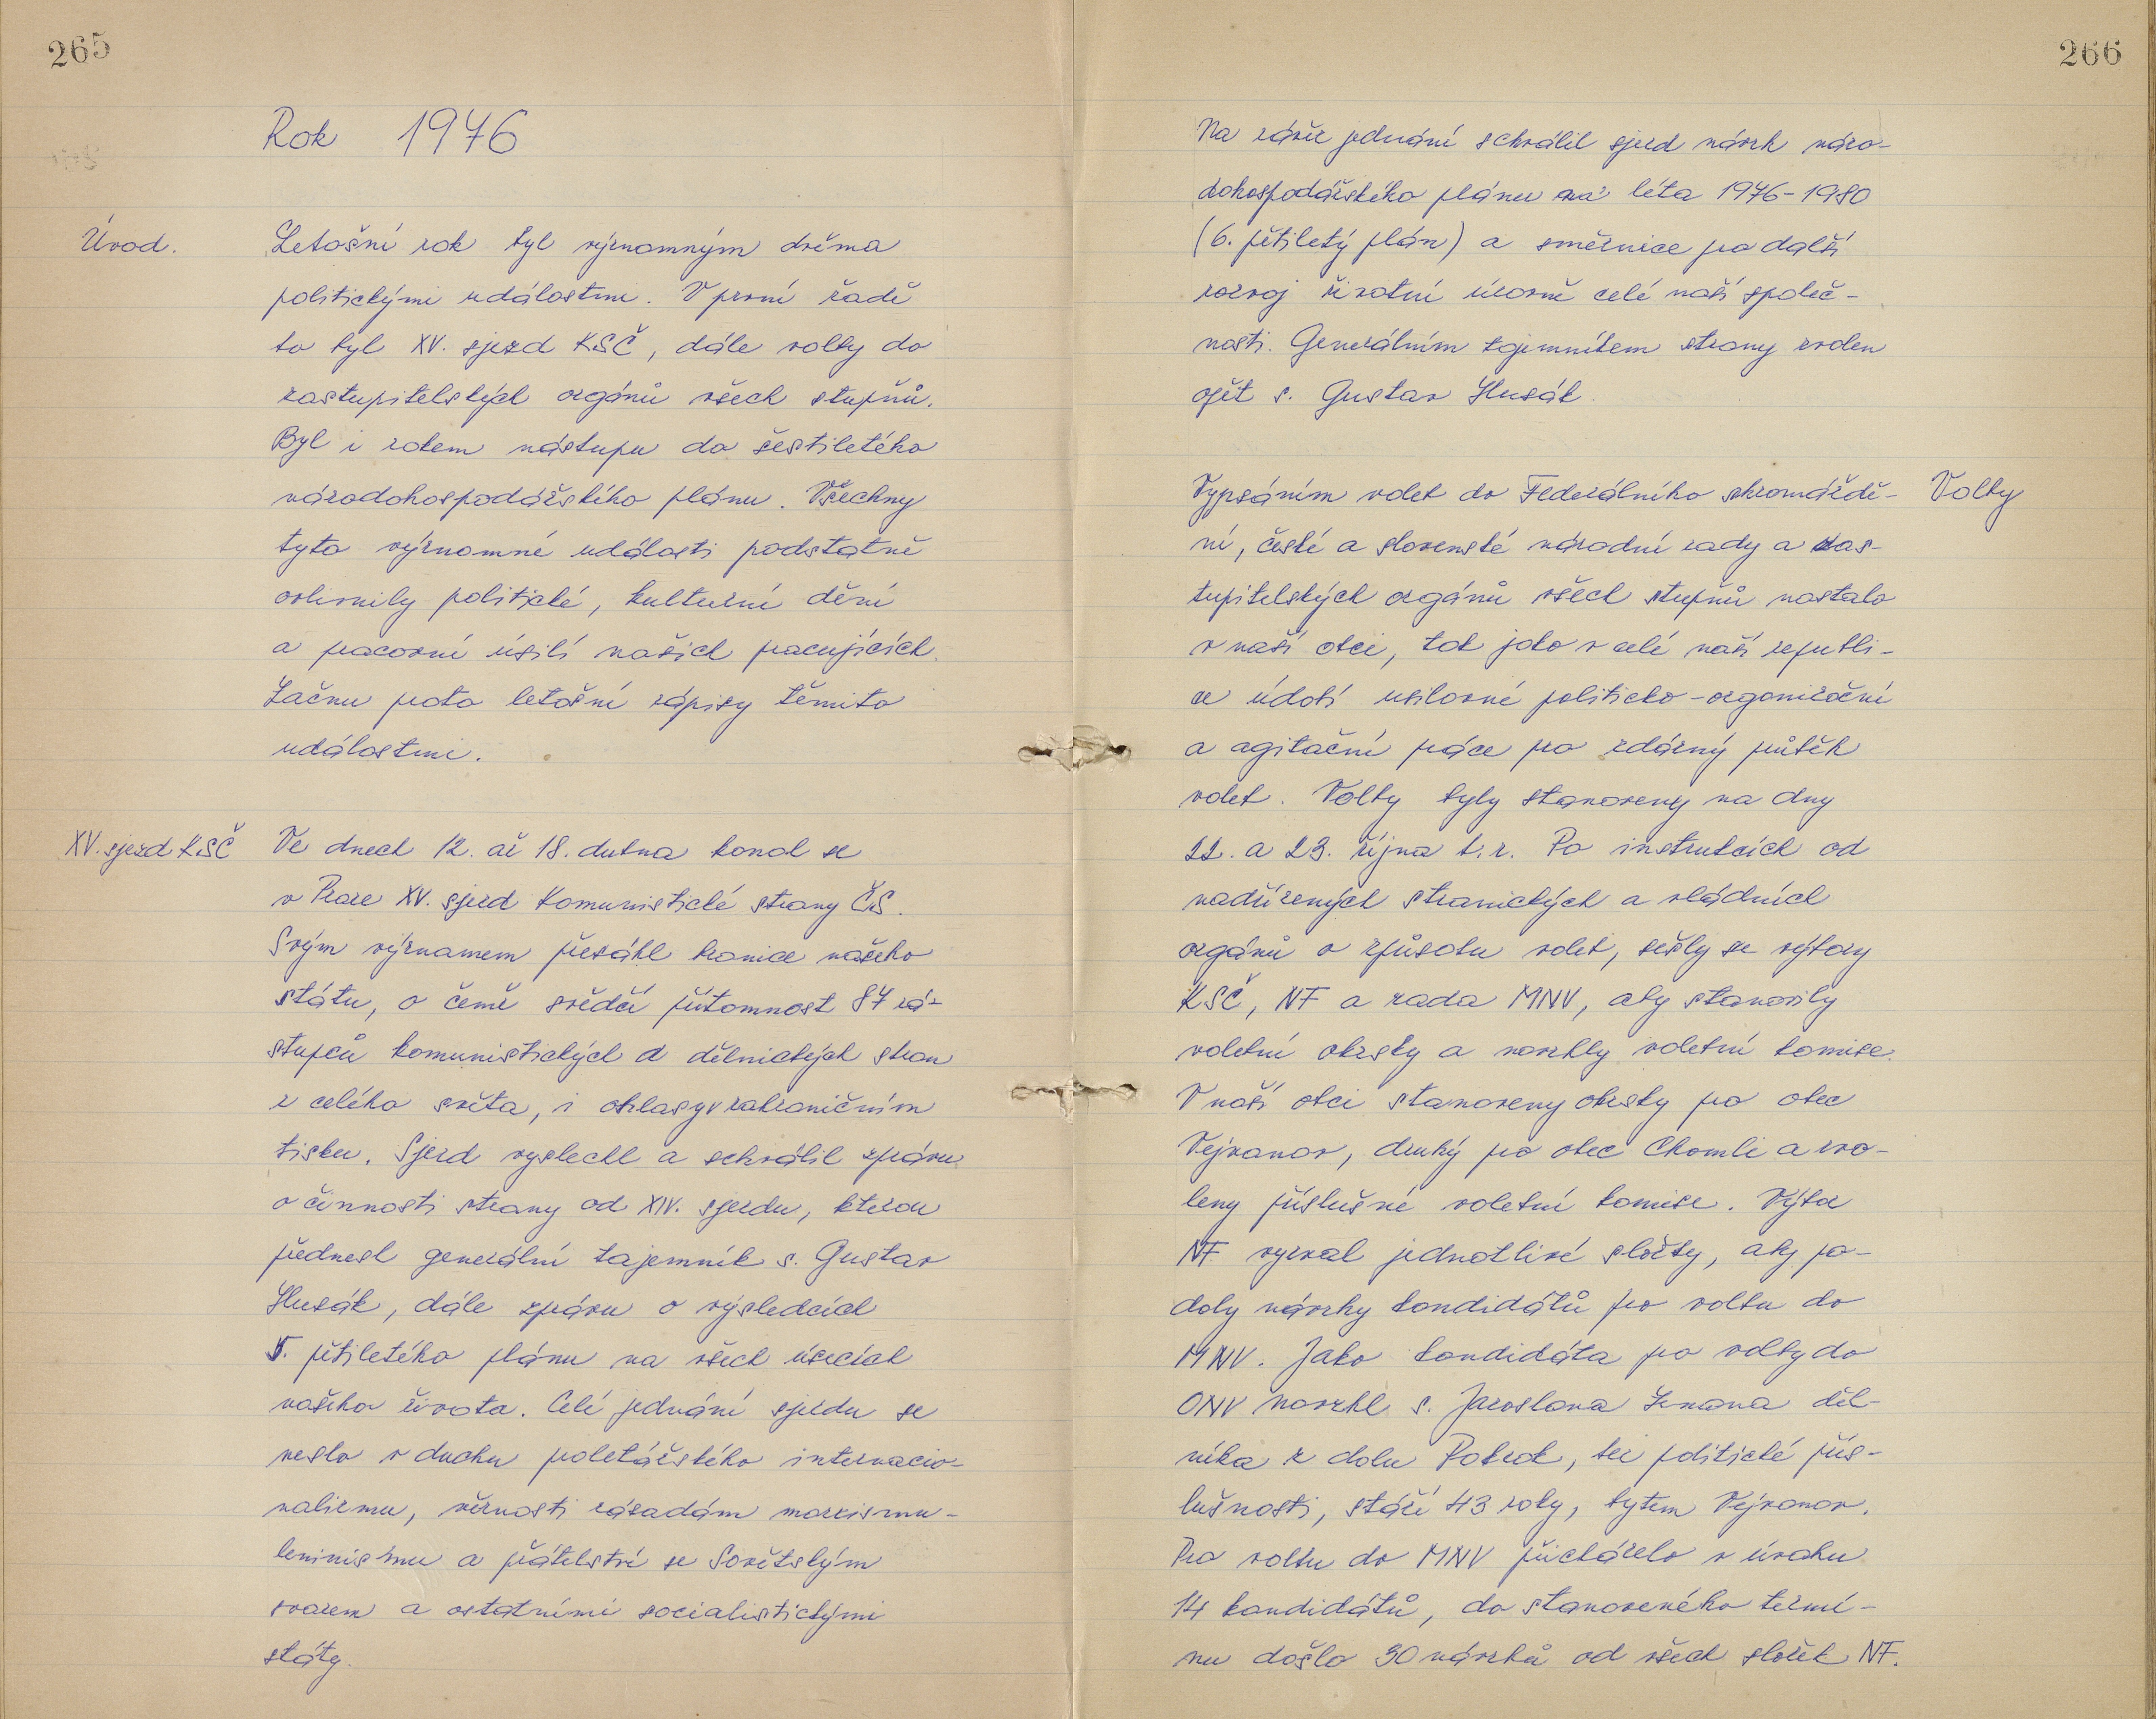 265
Rok 1976
Úvod.
Letošní rok byl významným dvěma
politickými událostmi. V první řadě
to byl XV. sjezd KSČ, dále volby do
zastupitelských orgánů všech stupňů.
Byl i rokem nástupu do šestiletého
národohospodářského plánu. Všechny
tyto významné události podstatně
ovlivnily politické, kulturní dění
a pracovní úsilí našich pracujících.
Začnu proto letošní zápisy těmito
událostmi.
XV. sjezd KSČ
Ve dnech 12. až 18. dubna konal se
v Praze XV. sjezd Komunistické strany ČS.
Svým významem přesáhl hranice našeho
státu, o čemě svědčí přítomnost 87 zá-
stupců komunistických a dělnických stran
z celého světa, i ohlasy v zahraničním
tisku. Sjezd vyslechl a schválil zprávu
o činnosti strany od XIV. sjezdu, kterou
přednesl generální tajemník s. Gustav
Husák, dále zprávu o výsledcích
5. pětiletého plánu na všech úsecích
našeho života. Celé jednání sjezdu se
neslo v duchu proletářského internacio-
nalizmu, věrnosti zásadám marxismu-
leninismu a přátelství se Sovětským
svazem a ostatními socialistickými
státy.
266
Na závěr jednání schválil sjezd návrh náro-
dohospodářského plánu na léta 1976-1980
(6. pětiletý plán) a směrnice pro další
rozvoj životní úrovně celé naší společ-
nosti. Generálním tajemníkem strany zvolen
opět s. Gustav Husák.
Volby
Vypsáním voleb do Federálního shromáždě-
ní, české a slovenské národní rady a zas-
tupitelských orgánů všech stupňů nastalo
v naší obci, tak jako v celé naší republi-
ce údobí usilovné politicko-organizační
a agitační práce pro zdárný průběh
voleb. Volby byly stanoveny na dny
22. a 23. října t.r. Po instrukcích od
nadřízených stranických a vládních
orgánů o způsobu voleb, sešly se výbory
KSČ, NF a rada MNV, aby stanovily
volební okrsky a navrhly volební komise.
V naší obci stanoveny okrsky pro obec
Vejvanov, druhý pro obec Chomle a zvo-
leny příslušné volební komise. Výbor
NF vyzval jednotlivé složky, aby po-
daly návrhy kandidátů pro volbu do
MNV. Jako kandidáta pro volby do
ONV navrhl s. Jaroslava Zemana děl-
níka z dolu Pokrok, bez politické přís-
lušnosti, stáří 43 roky, bytem Vejvanov.
Pro volbu do MNV přicházelo v úvahu
14 kandidátů, do stanoveného termí-
nu došlo 30 návrhů od všech složek NF.